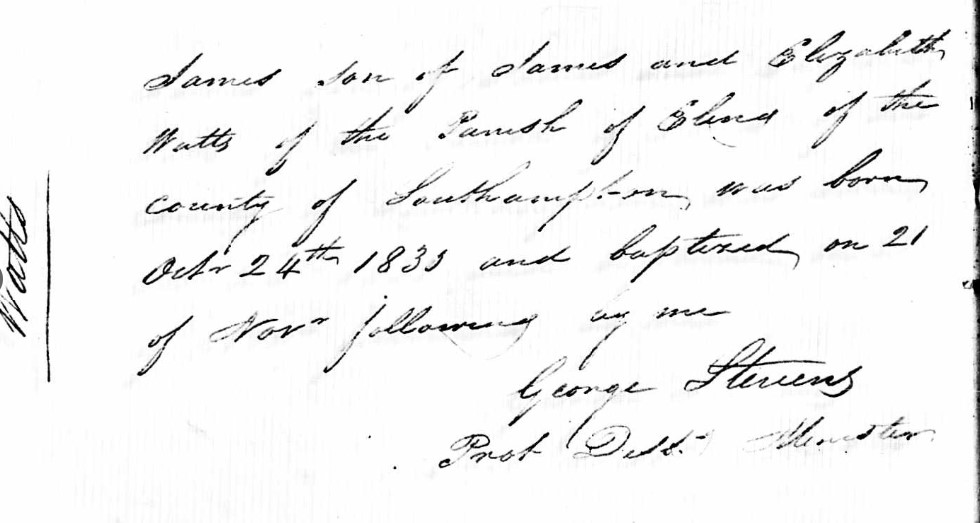 Watts
James son of James and Elizabeth
Watts of the Parish of Eling of the
county of Southampton, was born
Octr 24th 1835 and baptized on 21
of Novr following by me
George Stevens
Prot Disst Minister